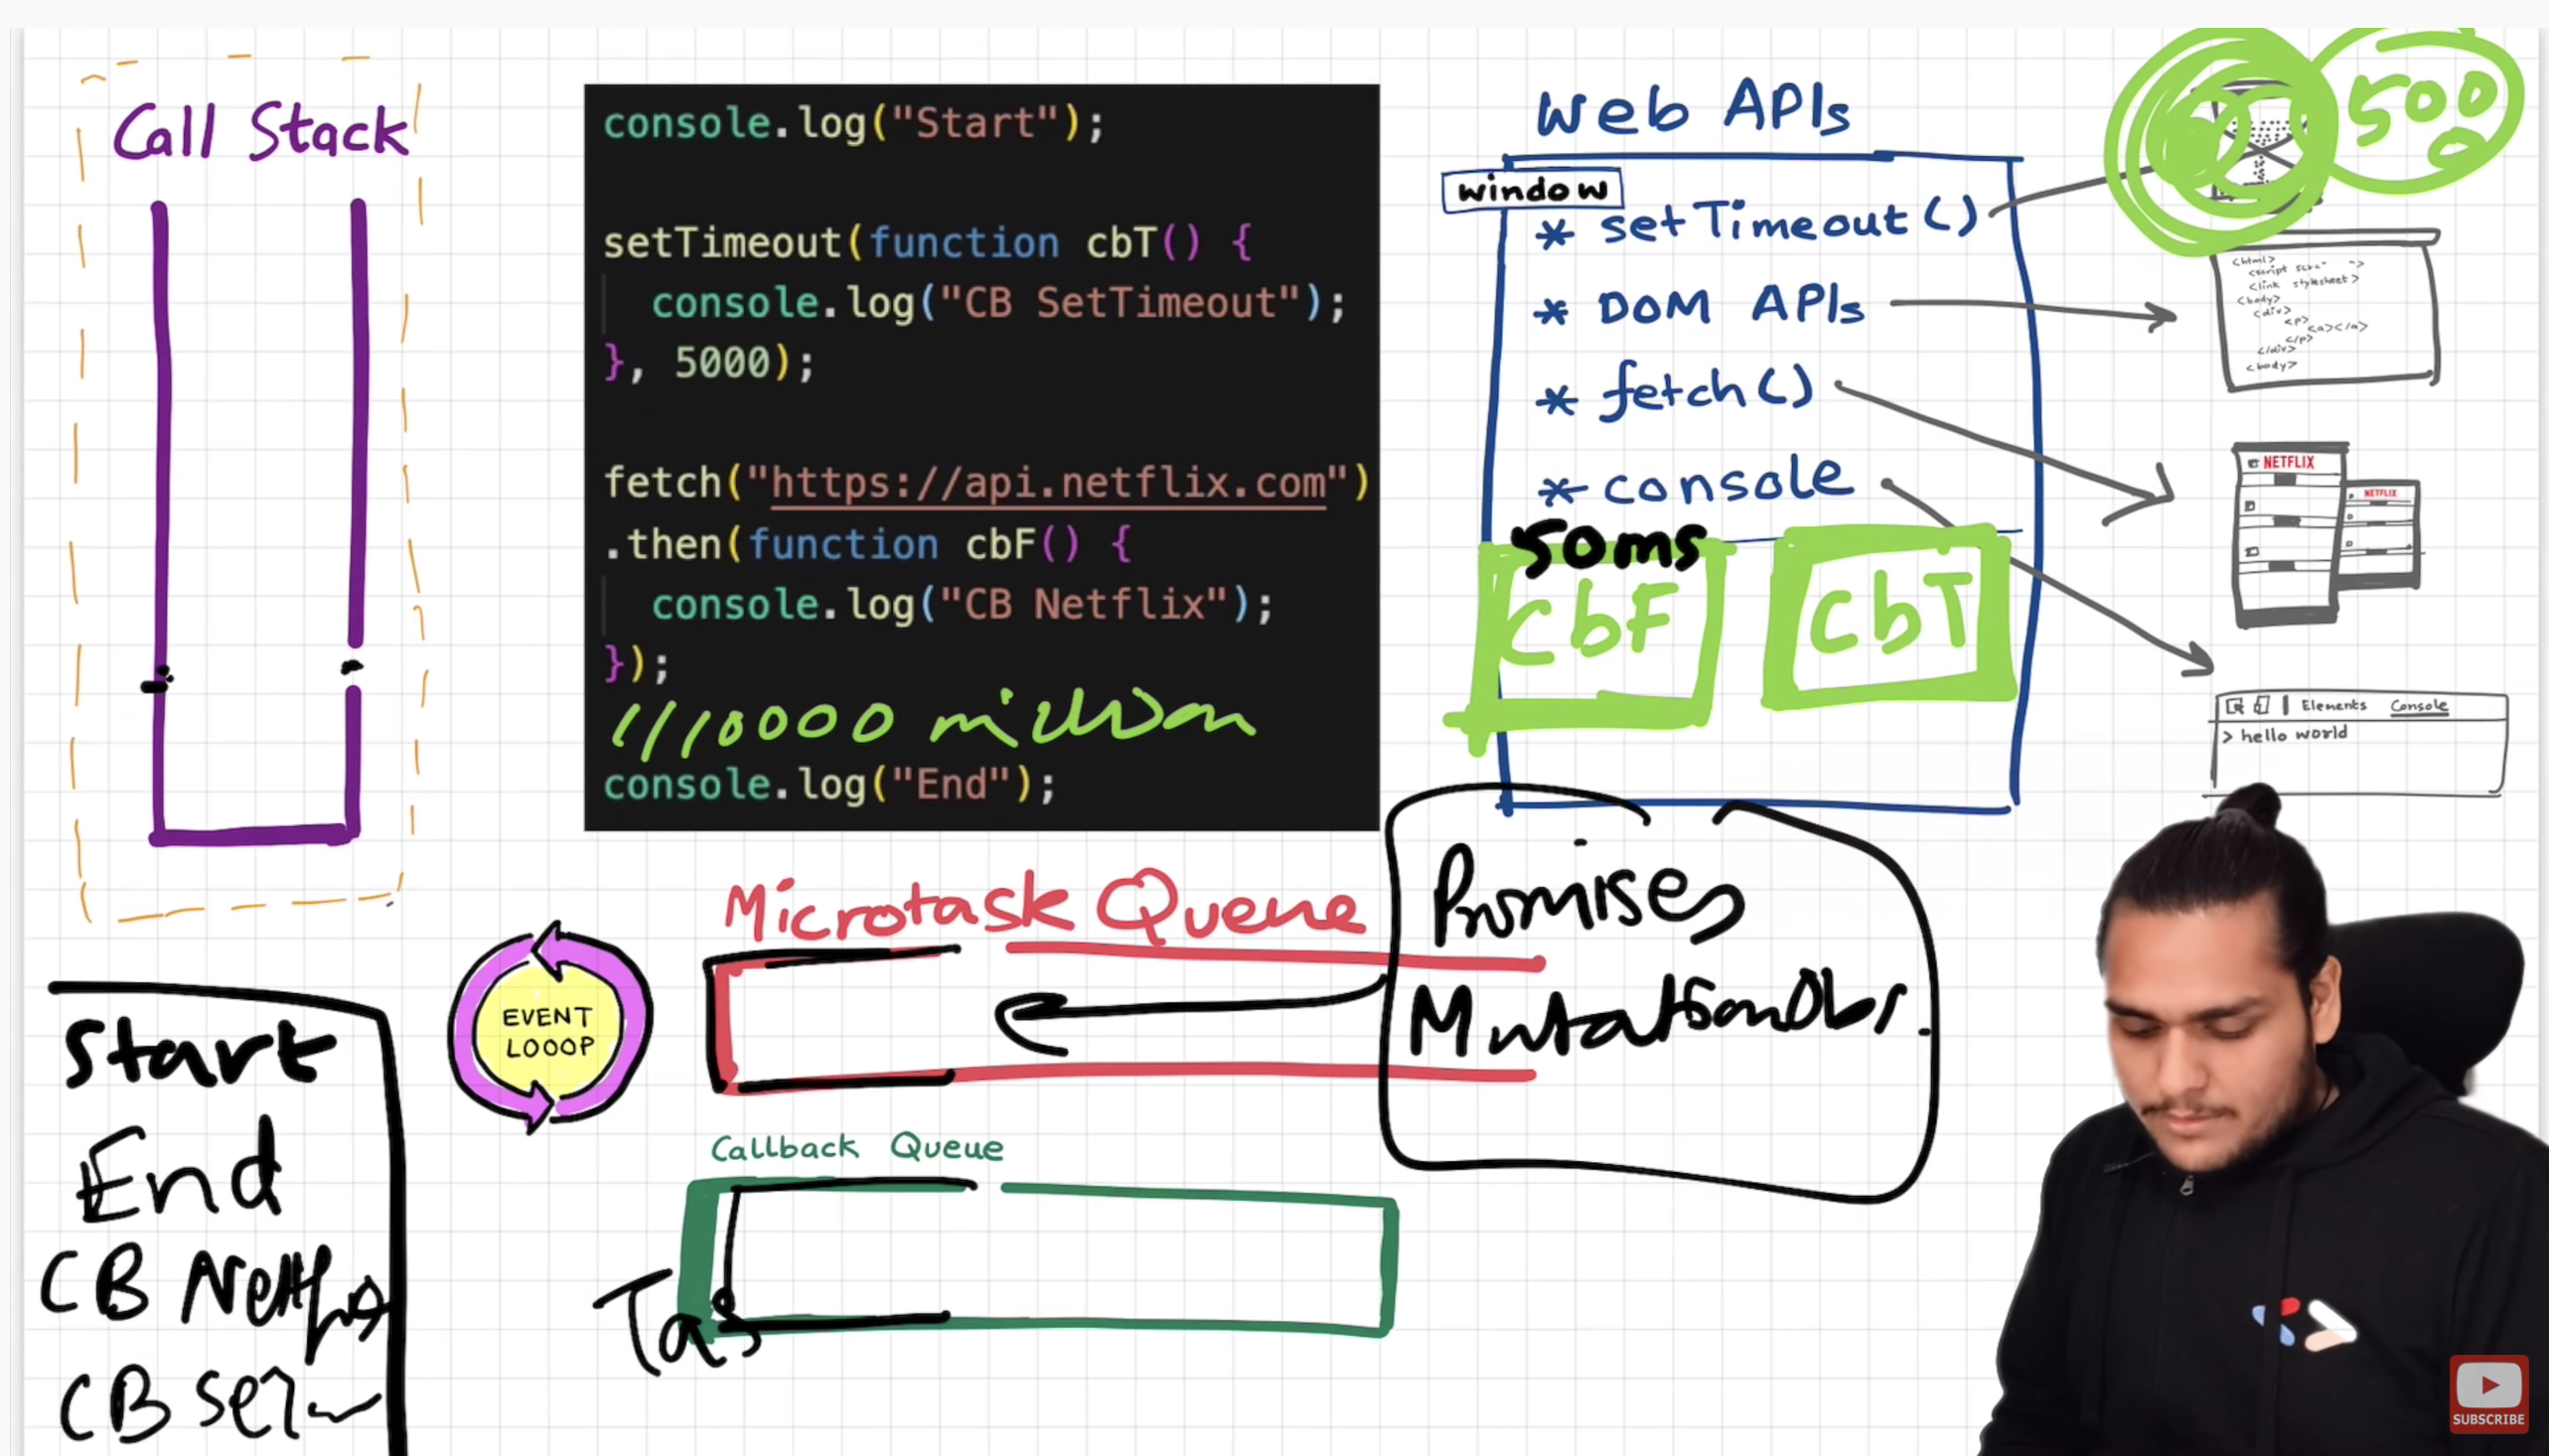 Call Stack
console.log("Start");
setTimeout(function cbT() {
console.log("CB SetTimeout");
}, 5000);
fetch("https://api.netflix.com")
.then(function cbF() {
console.log("CB Netflix");
});
10000 million
console.log("End");
Web APIs
window
* setTimeout()
* DOM APIs
* fetch()
* console
50ms
CbF
CbT
500
0
<html>
<link stylesheet>
<body>
<div>
<p>
<a></a>
</p>
</div>
<body>
NETFLIX
NETFLIX
Elements Console
> hello world
Microtask Queue
Promises
MutationObs.
EVENT
LOOOP
Callback Queue
Tas
Start
End
CB Netflix
CB
SUBSCRIBE